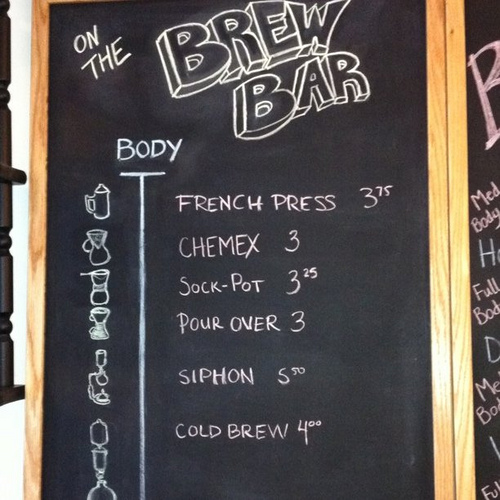 ON
THE
BREW
BAR
BODY
FRENCH PRESS 3 75
CHEMEX 3
SOCK-POT 3 25
POUR OVER 3
SIPHON 5 50
COLD BREW 4 00
Med
Body
Full
Bod
Med
Body
Ful